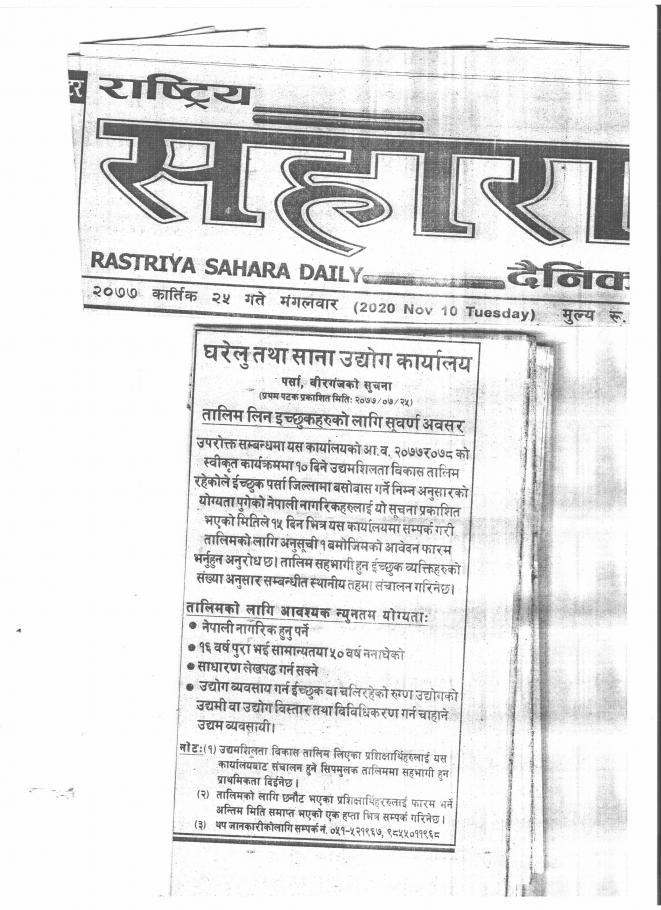 टर राष्ट्रिय
सहारा
RASTRIYA SAHARA DAILY
दैनिक
२०७७ कार्तिक २५ गते मंगलवार (2020 Nov 10 Tuesday) मुल्य रू.
घरेलु तथा साना उद्योग कार्यालय
पर्सा, बीरगंजको सुचना
(प्रथम पटक प्रकाशित मितिः २०७७/०७/२५)
तालिम लिन इच्छुकहरुको लागि सूवर्ण अवसर
उपरोक्त सम्बन्धमा यस कार्यालयको आ.व. २०७७र०७८ को
स्वीकृत कार्यक्रममा १० दिने उद्यमशिलता विकास तालिम
रहेकोले ईच्छुक पर्सा जिल्लामा बसोवास गर्ने निम्न अनुसारको
योग्यता पुगेको नेपाली नागरिकहरुलाई यो सुचना प्रकाशित
भएको मितिले १५ दिन भित्र यस कार्यालयमा सम्पर्क गरी
तालिमको लागि अनुसूची १ बमोजिमको आवेदन फारम
भर्नुहुन अनुरोध छ। तालिम सहभागी हुन ईच्छुक व्यक्तिहरुको
संख्या अनुसार सम्बन्धीत स्थानीय तहमा संचालन गरिनेछ।
तालिमको लागि आवश्यक न्युनतम योग्यताः
● नेपाली नागरिक हुनु पर्ने
● १६ वर्ष पुरा भई सामान्यतया ५० वर्ष ननाघेको
● साधारण लेखपढ गर्न सक्ने
● उद्योग व्यवसाय गर्न ईच्छुक वा चलिरहेको रुग्ण उद्योगको
उद्यमी वा उद्योग विस्तार तथा विविधिकरण गर्न चाहाने
उद्यम व्यवसायी।
नोटः (१) उद्यमशिलता विकास तालिम लिएका प्रशिक्षार्थिहरुलाई यस
कार्यालयबाट संचालन हुने सिपमुलक तालिममा सहभागी हुन
प्राथमिकता दिईनेछ।
(२) तालिमको लागि छनौट भएका प्रशिक्षार्थिहरुलाई फारम भर्ने
अन्तिम मिति समाप्त भएको एक हप्ता भित्र सम्पर्क गरिनेछ।
(३) थप जानकारीकोलागि सम्पर्क नं. ०५१-५२१९६७, ९८५५०११९६८